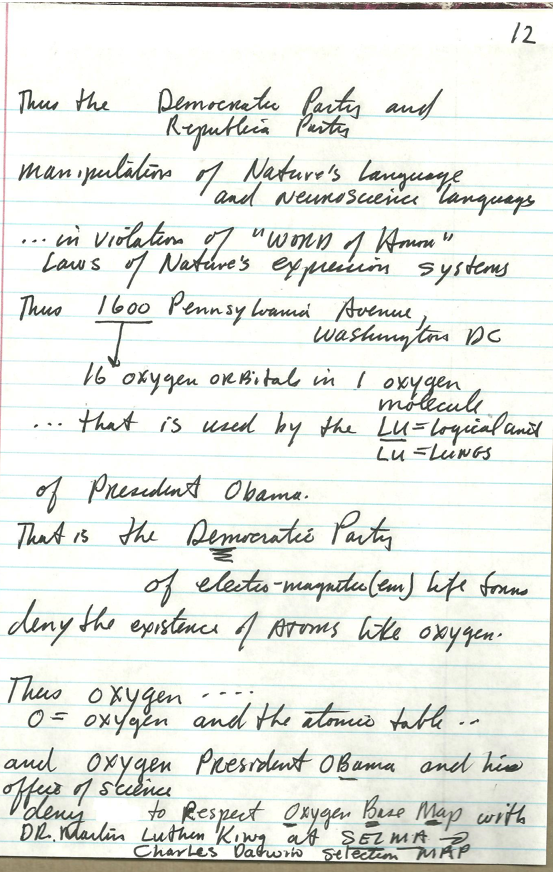 12
Thus the Democratic Party and
Republica Party
manipulation of Nature's Language
and neuroscience language
... in violation of "WORD of Honor"
Laws of Nature's expression systems
Thus 1600 Pennsylvania Avenue,
Washington DC
16 oxygen orbitals in 1 oxygen
molecule
... that is used by the LU = logical unit
LU = LUNGS
of President Obama.
That is the Democratic Party
of electro-magnetic (em) life forms
deny the existence of Atoms like oxygen.
Thus oxygen ....
O = oxygen and the atomic table ..
and oxygen President OBama and his
office of science
deny to Respect Oxygen Base Map with
DR. Martin Luther King at SELMA →
Charles Darwin Selection MAP